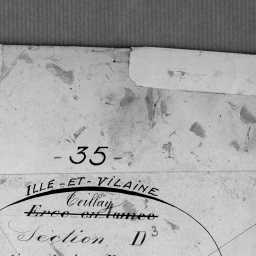 - 35 -
ILLE-ET-VILAINE
Teillay
Ercé en Lamée
Section D 3